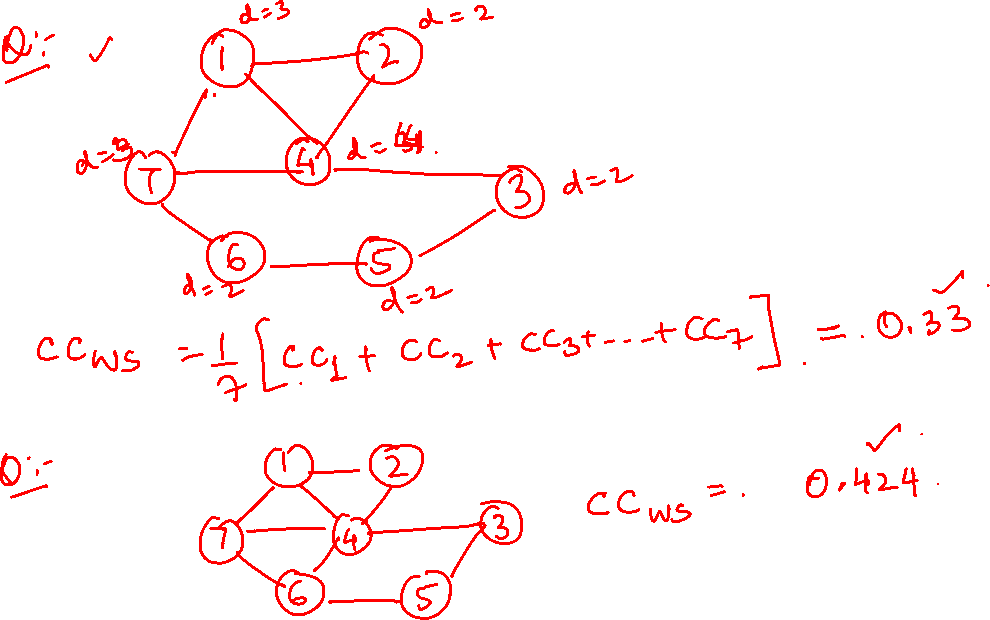 Q:- ✓
d=3
d=2
1
2
d=3
7
4
d=4.
3
d=2
6
5
d=2
d=2
CC_WS = 1/7 [CC_1 + CC_2 + CC_3 + ... + CC_7] = 0.33 ✓
Q:-
1
2
CC_WS = 0.424 ✓
7
4
3
6
5